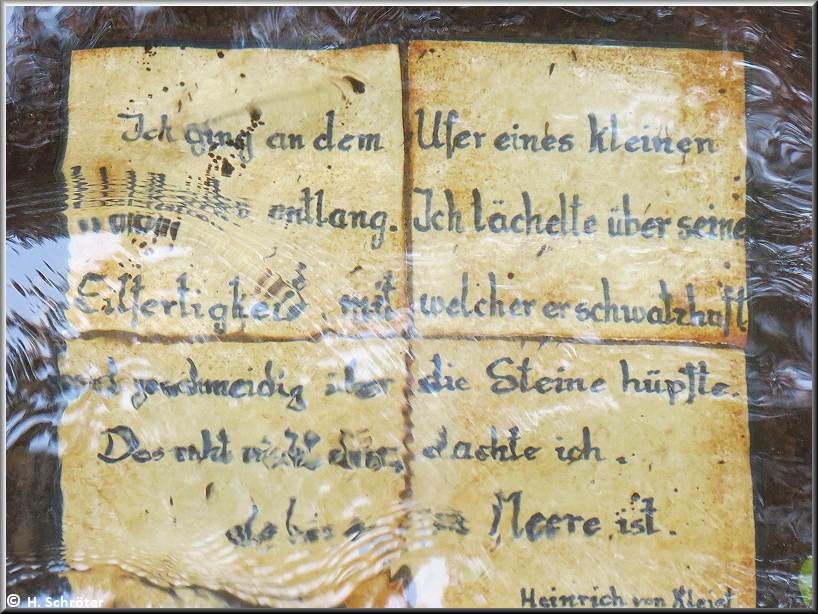 Ich ging an dem Ufer eines kleinen
entlang. Ich lächelte über seine
Eilfertigkeit, mit welcher er schwatzhaft
und geschmeidig über die Steine hüpfte.
Das ruht nicht eher, dachte ich.
als bis es am Meere ist.
Heinrich von Kleist
© H. Schröter